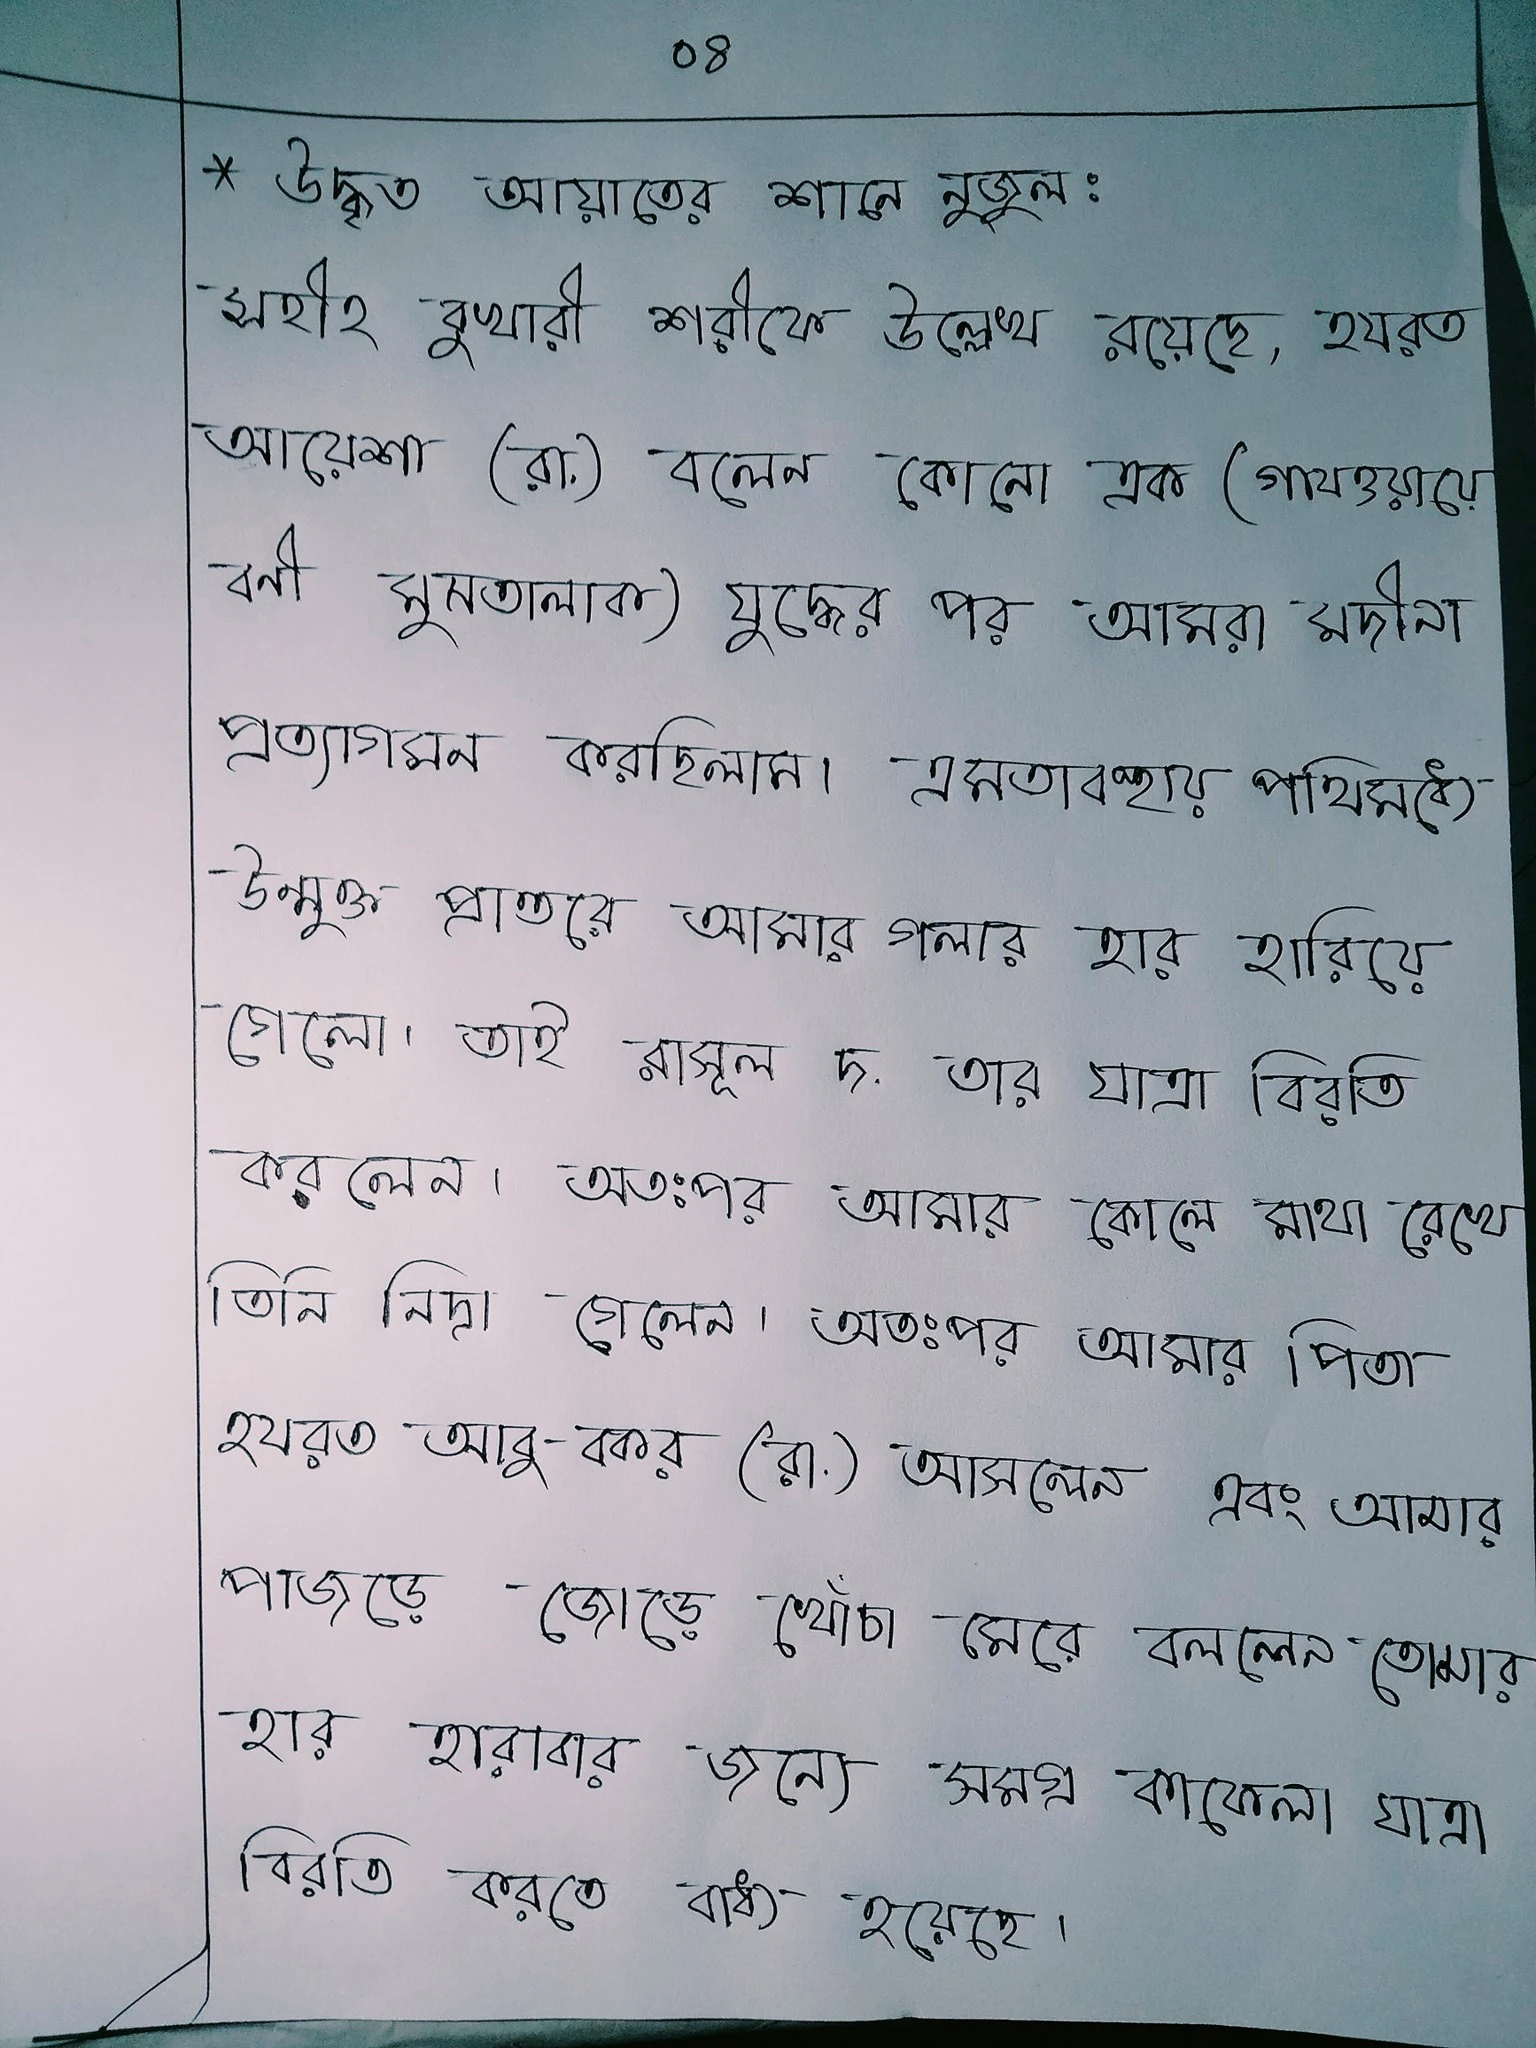 ০৪
* উদ্ধৃত আয়াতের শানে নুজুল:
সহীহ বুখারী শরীফে উল্লেখ রয়েছে, হযরত
আয়েশা (রা.) বলেন কোনো এক (গাযওয়ায়ে
বনী মুসতালাক) যুদ্ধের পর আমরা মদীনা
প্রত্যাগমন করছিলাম। এমতাবস্থায় পথিমধ্যে
উন্মুক্ত প্রান্তরে আমার গলার হার হারিয়ে
গেলো। তাই রাসূল দ. তার যাত্রা বিরতি
করলেন। অতঃপর আমার কোলে মাথা রেখে
তিনি নিদ্রা গেলেন। অতঃপর আমার পিতা
হযরত আবু-বকর (রা.) আসলেন এবং আমার
পাজড়ে জোড়ে খোঁচা মেরে বললেন তোমার
হার হারাবার জন্যে সমগ্র কাফেলা যাত্রা
বিরতি করতে বাধ্য হয়েছে।